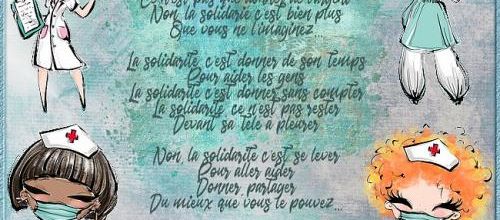 Non la solidarite c'est bien plus
Que vous ne l'imaginez
La solidarite c'est donner de son temps
Pour aider les gens
La solidarite c'est donner sans compter
La solidarite ce n'est pas rester
Devant sa tele a pleurer
Non la solidarite c'est se lever
Pour aller aider
Donner partager
Du mieux que vous le pouvez...